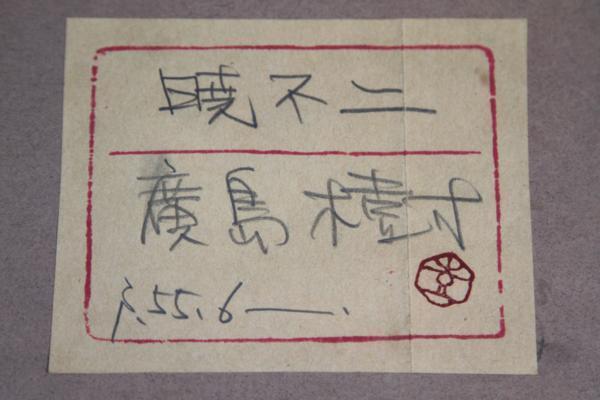 暁不二
廣島樹
55.6